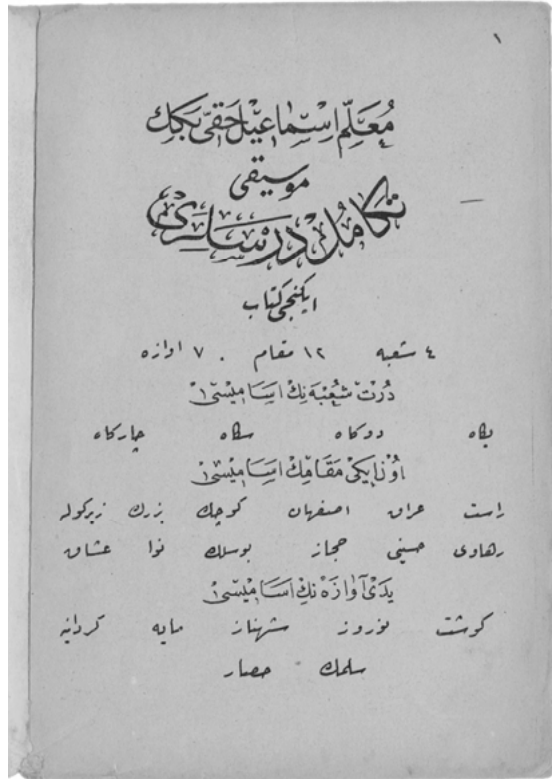 ١
مُعَلِّم اِسْمَاعِيل حَقِّى بَكِك
موسيقى
تَكَامُلْ دَرْسَلَرِىْ
ايكنجى كتاب
٤ شعبه ١٢ مقام . ٧ اوازه
دُرْتْ شُعْبَه نِكْ اَسَامِيْسِىْ
يكاه دوكاه سكاه چاركاه
اوُنْ اِيكِى مَقَامِكْ اَسَامِيْسِىْ
راست عراق اصفهان كوچك بزرك زيركوله
رهاوى حسينى حجاز بوسلك نوا عشاق
يَدِىْ آوَازَه نِكْ اَسَامِيْسِىْ
كوشت نوروز شهناز مايه كردانيه
سلمك حصار